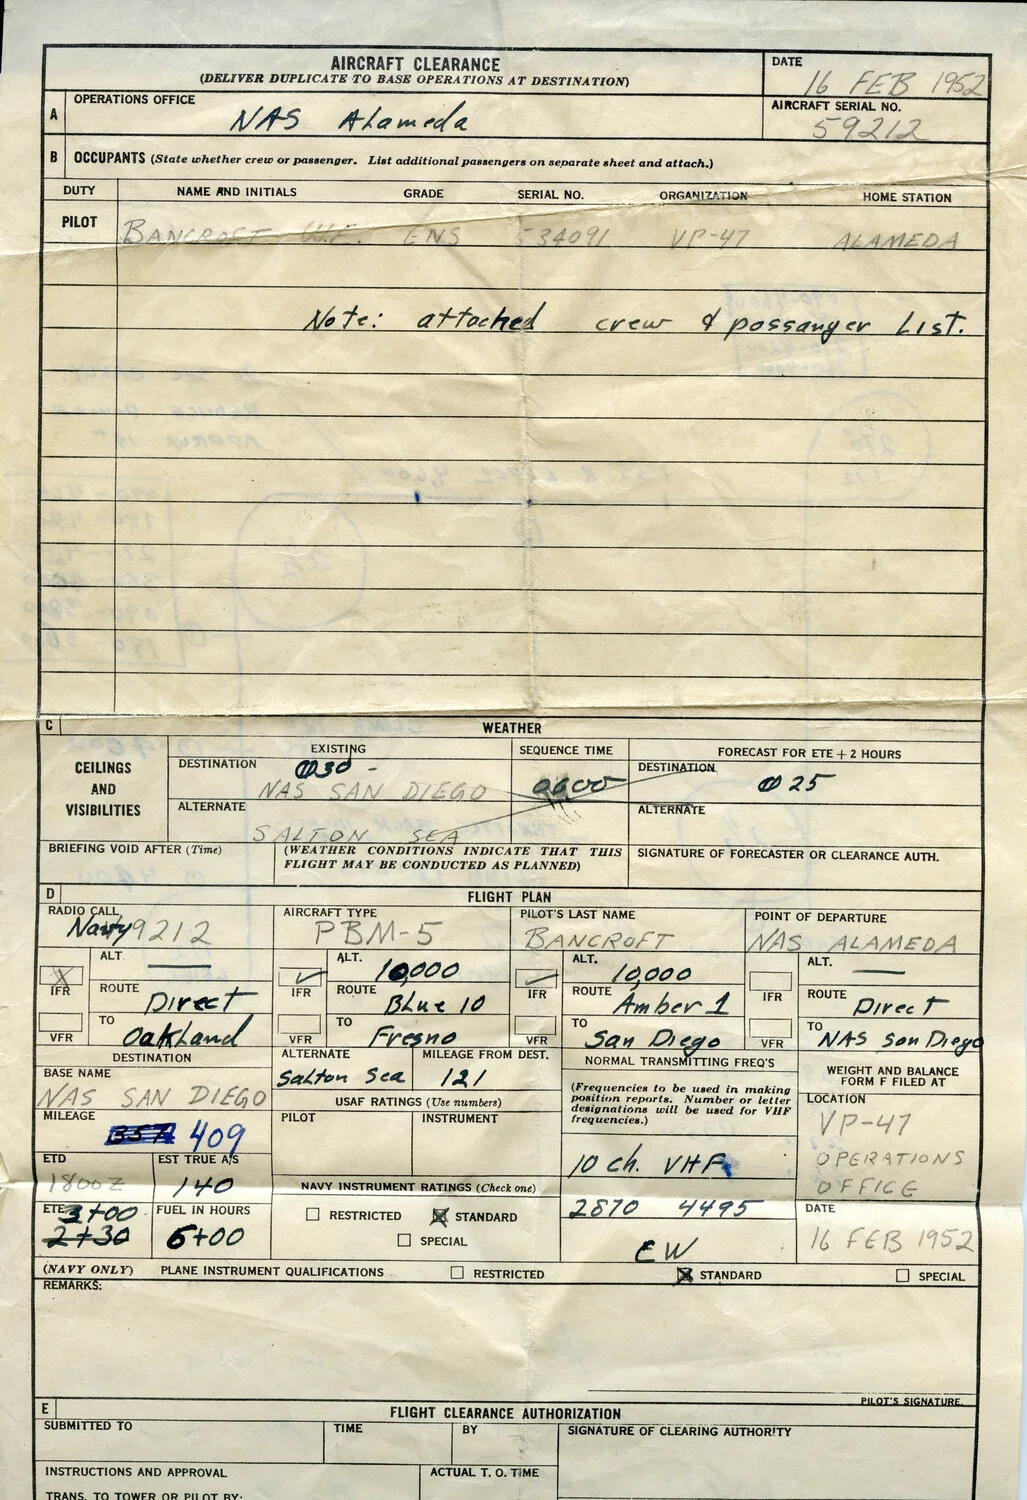 AIRCRAFT CLEARANCE
(DELIVER DUPLICATE TO BASE OPERATIONS AT DESTINATION)
DATE
16 FEB 1952
A
OPERATIONS OFFICE
NAS Alameda
AIRCRAFT SERIAL NO.
59212
B OCCUPANTS (State whether crew or passenger. List additional passengers on separate sheet and attach.)
DUTY NAME AND INITIALS GRADE SERIAL NO. ORGANIZATION HOME STATION
PILOT BANCROFT W.F. ENS 534091 VP-47 ALAMEDA
Note: attached crew & possanger List.
C WEATHER
CEILINGS AND VISIBILITIES
EXISTING
DESTINATION
30 -
NAS SAN DIEGO
ALTERNATE
SALTON SEA
SEQUENCE TIME
0600
FORECAST FOR ETE + 2 HOURS
DESTINATION
25
ALTERNATE
BRIEFING VOID AFTER (Time)
(WEATHER CONDITIONS INDICATE THAT THIS
FLIGHT MAY BE CONDUCTED AS PLANNED)
SIGNATURE OF FORECASTER OR CLEARANCE AUTH.
D FLIGHT PLAN
RADIO CALL
Navy 9212
AIRCRAFT TYPE
PBM-5
PILOT'S LAST NAME
BANCROFT
POINT OF DEPARTURE
NAS ALAMEDA
X IFR
VFR
ALT. —
ROUTE Direct
TO Oakland
✓ IFR
VFR
ALT. 10,000
ROUTE Blue 10
TO Fresno
✓ IFR
VFR
ALT. 10,000
ROUTE Amber 1
TO San Diego
IFR
VFR
ALT. —
ROUTE Direct
TO NAS San Diego
DESTINATION
BASE NAME
NAS SAN DIEGO
MILEAGE
409
ETD
1800Z
EST TRUE A/S
140
ETE 3+00
2+30
FUEL IN HOURS
6+00
ALTERNATE
Salton Sea
MILEAGE FROM DEST.
121
USAF RATINGS (Use numbers)
PILOT INSTRUMENT
NAVY INSTRUMENT RATINGS (Check one)
RESTRICTED X STANDARD
SPECIAL
NORMAL TRANSMITTING FREQ'S
(Frequencies to be used in making
position reports. Number or letter
designations will be used for VHF
frequencies.)
10 ch. VHF
2870 4495
CW
WEIGHT AND BALANCE
FORM F FILED AT
LOCATION
VP-47
OPERATIONS
OFFICE
DATE
16 FEB 1952
(NAVY ONLY) PLANE INSTRUMENT QUALIFICATIONS RESTRICTED X STANDARD SPECIAL
REMARKS:
PILOT'S SIGNATURE
E FLIGHT CLEARANCE AUTHORIZATION
SUBMITTED TO TIME BY SIGNATURE OF CLEARING AUTHORITY
INSTRUCTIONS AND APPROVAL
ACTUAL T. O. TIME
TRANS. TO TOWER OR PILOT BY: